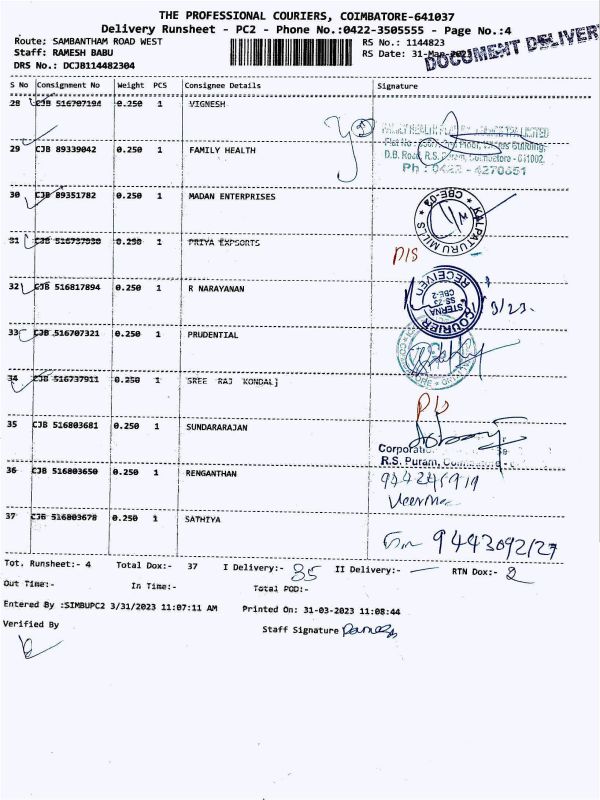 THE PROFESSIONAL COURIERS, COIMBATORE-641037
Delivery Runsheet - PC2 - Phone No.:0422-3505555 - Page No.:4
Route: SAMBANTHAM ROAD WEST
RS No.: 1144823
Staff: RAMESH BABU
RS Date: 31-Mar-2023
DOCUMENT DELIVERY
DRS No.: DCJB114482304
S No Consignment No Weight PCS Consignee Details Signature
28 CJB 516707194 0.250 1 VIGNESH
29 CJB 89339042 0.250 1 FAMILY HEALTH
D.B. Road, R.S. Puram, Coimbatore - 641002.
Ph : 0422 - 4270651
30 CJB 89351782 0.250 1 MADAN ENTERPRISES
KALPATURU MILLS CBE-02
31 CJB 516737930 0.250 1 PRIYA EXPSORTS
D/S
32 CJB 516817894 0.250 1 R NARAYANAN
RECEIVED
CBE-2
COURIER
3/23.
33 CJB 516707321 0.250 1 PRUDENTIAL
34 CJB 516737911 0.250 1 SREE RAJ KONDALJ
35 CJB 516803681 0.250 1 SUNDARARAJAN
R.S. Puram,
36 CJB 516803650 0.250 1 RENGANTHAN
37 CJB 516803678 0.250 1 SATHIYA
9443092127
Tot. Runsheet:- 4 Total Dox:- 37 I Delivery:- 35 II Delivery:- — RTN Dox:- 2
Out Time:- In Time:- Total POD:-
Entered By :SIMBUPC2 3/31/2023 11:07:11 AM Printed On: 31-03-2023 11:08:44
Verified By
Staff Signature Ramesh